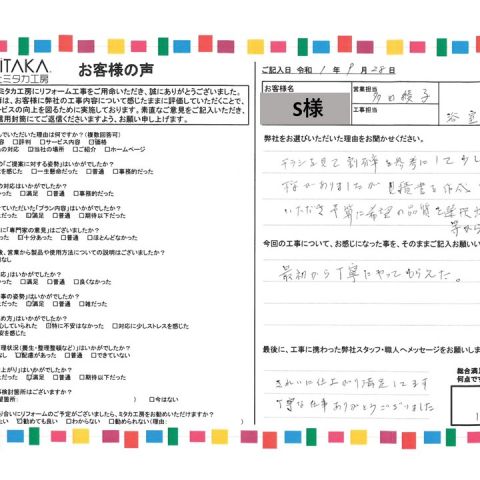 ITAKA
ミタカ工房
お客様の声
ミタカ工房にリフォーム工事をご用命いただき、誠にありがとうございました。
は、お客様に弊社の工事内容について感じたままに評価していただくことで、
ービスの向上を図るために実施しております。素直なご意見をご記入いただき、
用封筒にてご返信くださいますよう、お願い申し上げます。
んでいただいた理由は何ですか?(複数回答可)
容 □評判 □サービス内容 ☑価格
の対応 ☑当社の場所 □ご紹介 □ホームページ
の「ご提案に対する姿勢」はいかがでしたか?
を感じた □一生懸命だった □普通 □事務的だった
の対応はいかがでしたか?
だった ☑満足 □普通 □事務的だった
せていただいた「プラン内容」はいかがでしたか?
だった ☑満足 □普通 □期待以下だった
に「専門家の意見」はございましたか?
った ☑十分あった □普通 □ほとんどなかった
後、営業から製品や使用方法についての説明はございましたか?
なし
応」はいかがでしたか?
かった ☑満足 □普通 □良くなかった
事の姿勢」はいかがでしたか?
だった ☑満足 □普通 □雑だった
め方」はいかがでしたか?
心していられた ☑特に不安はなかった □対応に少しストレスを感じた
安を感じた
理状況(養生・整理整頓など)はいかがでしたか?
なし ☑配慮があった □できていない
上がり」はいかがでしたか?
だった ☑満足 □普通 □期待以下だった
検討箇所はございますか?
箇所: ) □今はない
り合いにリフォームのご予定がございましたら、ミタカ工房をお勧めいただけますか?
たい ☑勧めても良い □わからない □勧められない(理由: )
ご記入日 令和 1 年 9 月 28 日
お客様名
S様
営業担当
工事担当
浴室
弊社をお選びいただいた理由をお聞かせください。
チラシを見て
見積書を作成
いただき予算に希望の品質を
今回の工事について、お感じになった事を、そのままご記入お願い
最初から丁寧にやってもらえた。
最後に、工事に携わった弊社スタッフ・職人へメッセージをお願いしま
きれいに仕上がり満足してます
丁寧な仕事ありがとうございました
総合満足
何点です
1